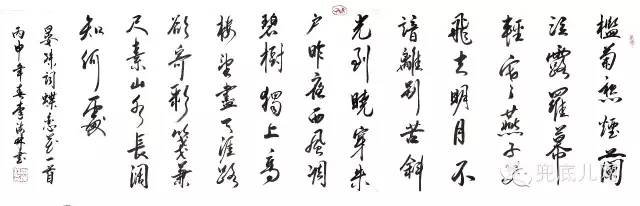 檻菊愁煙蘭
泣露羅幕
輕寒燕子双
飛去明月不
諳離別苦斜
光到曉穿朱
户昨夜西風凋
碧樹獨上高
樓望盡天涯路
欲寄彩箋兼
尺素山水長阔
知何處
晏殊詞蝶恋花一首
丙申年春李洪林書
兜底儿